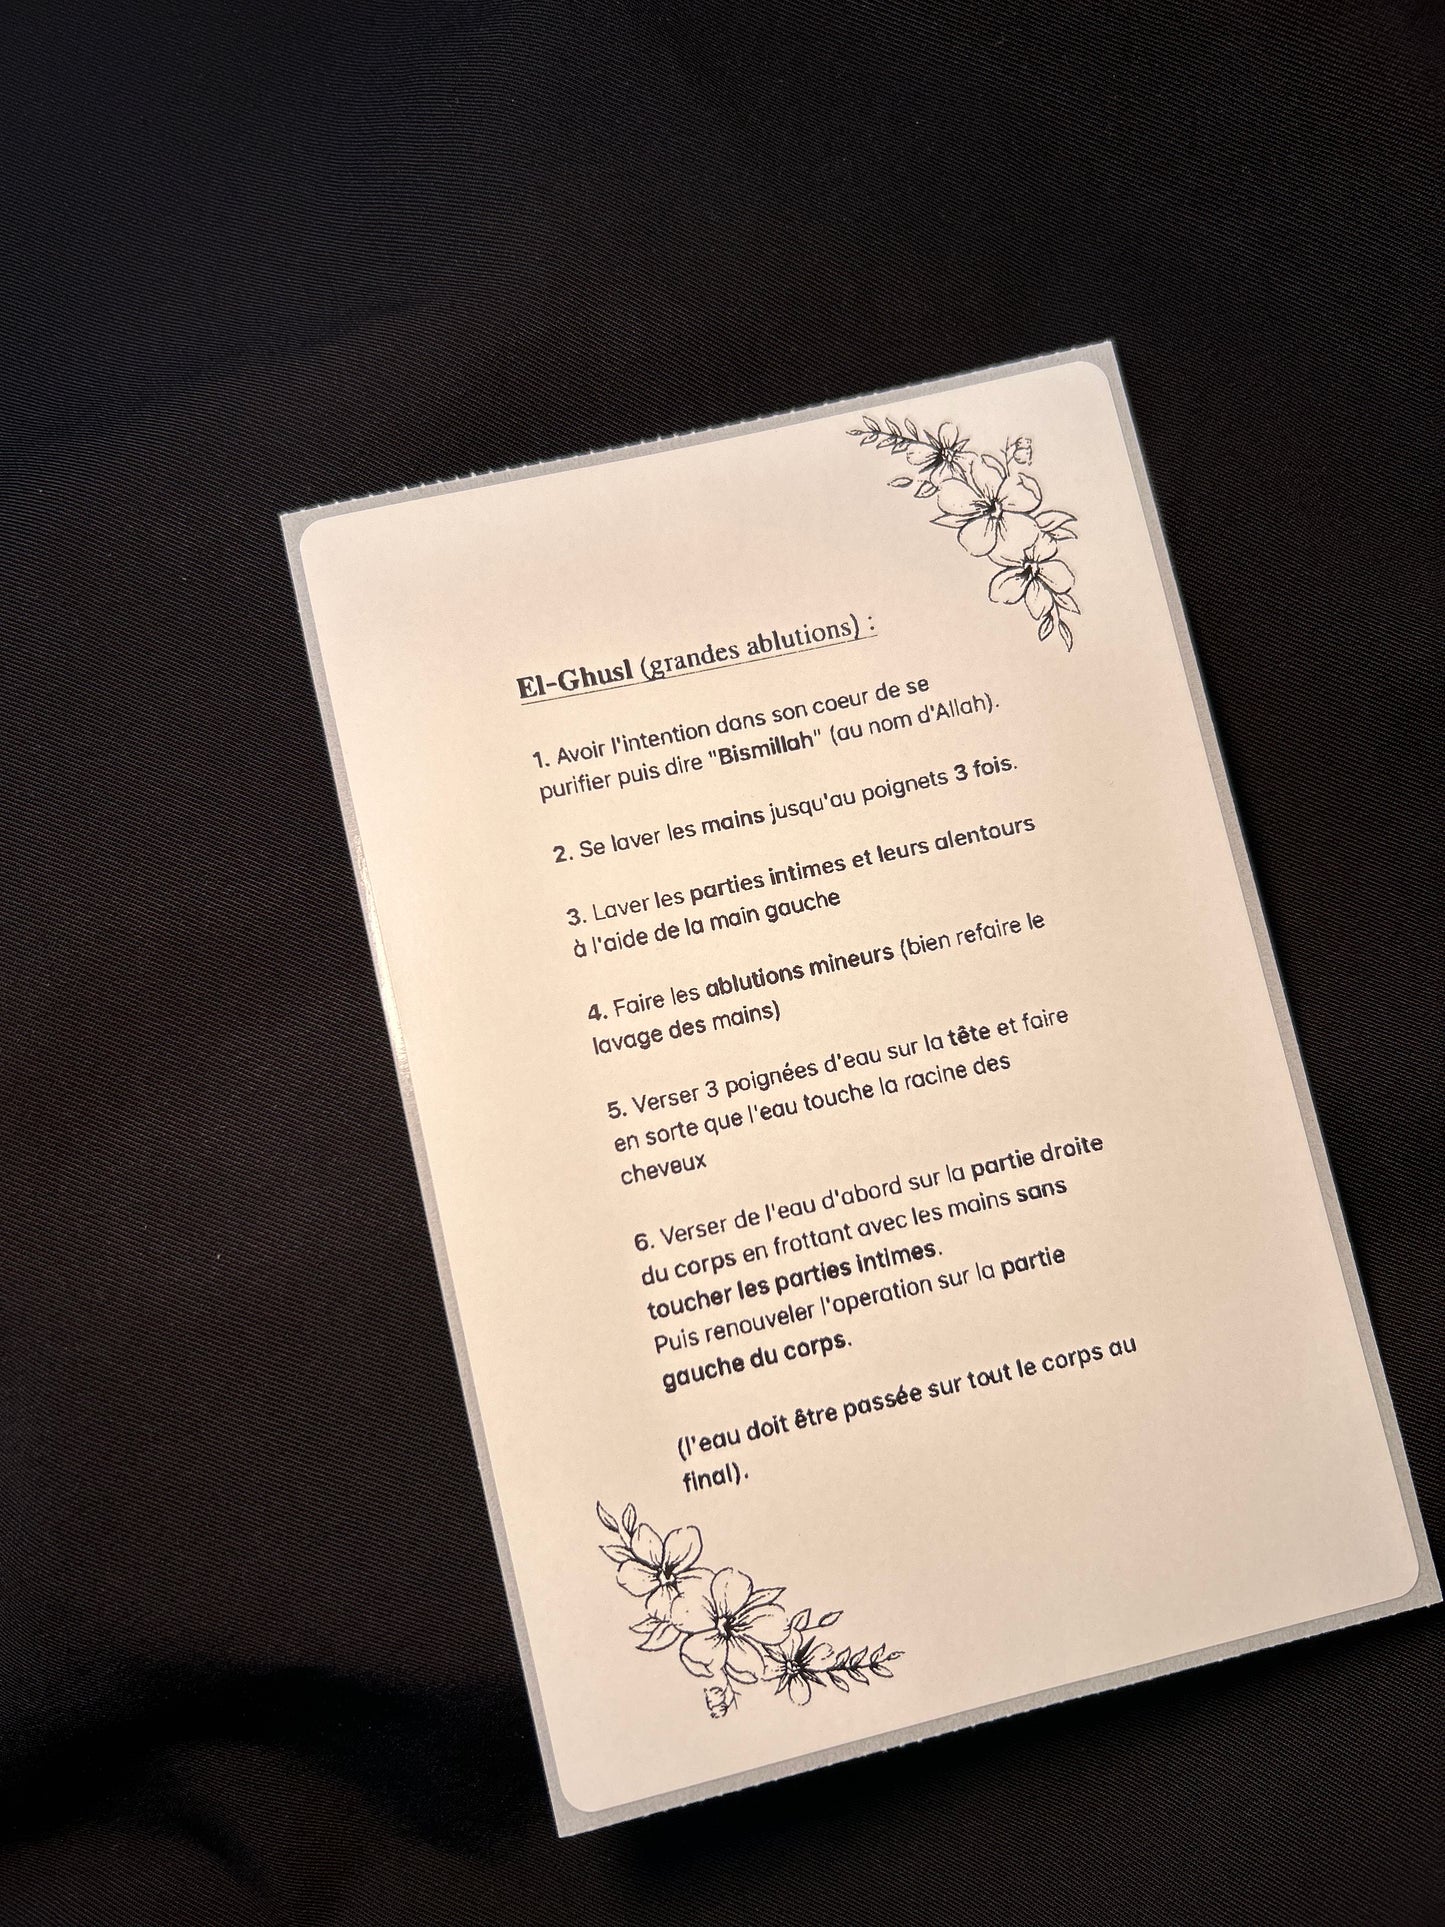 El-Ghusl (grandes ablutions) :
1. Avoir l'intention dans son coeur de se
purifier puis dire "Bismillah" (au nom d'Allah).
2. Se laver les mains jusqu'au poignets 3 fois.
3. Laver les parties intimes et leurs alentours
à l'aide de la main gauche
4. Faire les ablutions mineurs (bien refaire le
lavage des mains)
5. Verser 3 poignées d'eau sur la tête et faire
en sorte que l'eau touche la racine des
cheveux
6. Verser de l'eau d'abord sur la partie droite
du corps en frottant avec les mains sans
toucher les parties intimes.
Puis renouveler l'operation sur la partie
gauche du corps.
(l'eau doit être passée sur tout le corps au
final).